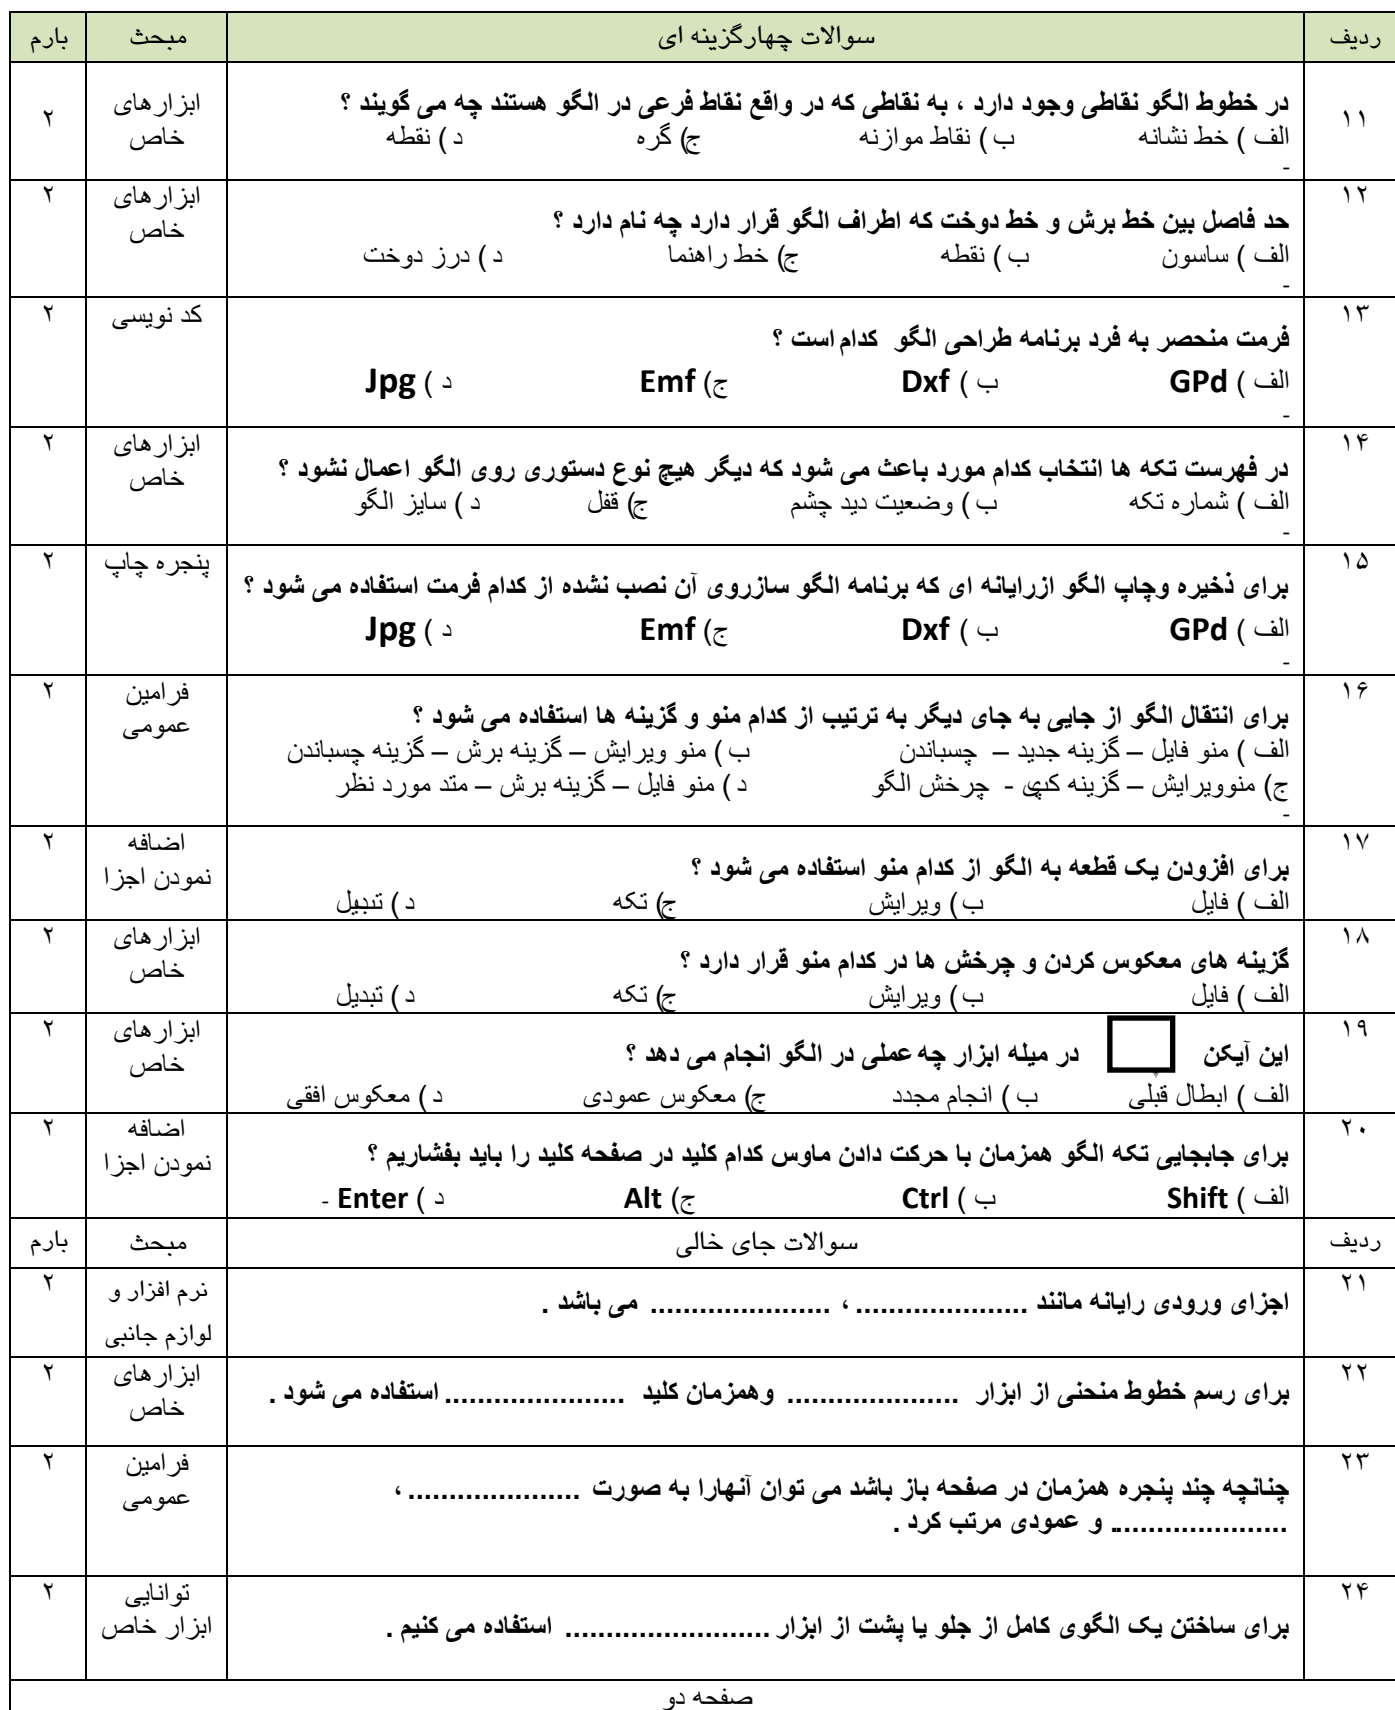 ردیف سوالات چهارگزینه ای مبحث بارم
۱۱ در خطوط الگو نقاطی وجود دارد ، به نقاطی که در واقع نقاط فرعی در الگو هستند چه می گویند ؟ ابزارهای خاص ۲
الف ) خط نشانه ب ) نقاط موازنه ج) گره د ) نقطه
-
۱۲ حد فاصل بین خط برش و خط دوخت که اطراف الگو قرار دارد چه نام دارد ؟ ابزارهای خاص ۲
الف ) ساسون ب ) نقطه ج) خط راهنما د ) درز دوخت
-
۱۳ فرمت منحصر به فرد برنامه طراحی الگو کدام است ؟ کد نویسی ۲
الف ) GPd ب ) Dxf ج) Emf د ) Jpg
-
۱۴ در فهرست تکه ها انتخاب کدام مورد باعث می شود که دیگر هیچ نوع دستوری روی الگو اعمال نشود ؟ ابزارهای خاص ۲
الف ) شماره تکه ب ) وضعیت دید چشم ج) قفل د ) سایز الگو
-
۱۵ برای ذخیره وچاپ الگو ازرایانه ای که برنامه الگو سازروی آن نصب نشده از کدام فرمت استفاده می شود ؟ پنجره چاپ ۲
الف ) GPd ب ) Dxf ج) Emf د ) Jpg
-
۱۶ برای انتقال الگو از جایی به جای دیگر به ترتیب از کدام منو و گزینه ها استفاده می شود ؟ فرامین عمومی ۲
الف ) منو فایل – گزینه جدید – چسباندن ب ) منو ویرایش – گزینه برش – گزینه چسباندن
ج) منوویرایش – گزینه کپی - چرخش الگو د ) منو فایل – گزینه برش – متد مورد نظر
-
۱۷ برای افزودن یک قطعه به الگو از کدام منو استفاده می شود ؟ اضافه نمودن اجزا ۲
الف ) فایل ب ) ویرایش ج) تکه د ) تبدیل
۱۸ گزینه های معکوس کردن و چرخش ها در کدام منو قرار دارد ؟ ابزارهای خاص ۲
الف ) فایل ب ) ویرایش ج) تکه د ) تبدیل
۱۹ این آیکن در میله ابزار چه عملی در الگو انجام می دهد ؟ ابزارهای خاص ۲
الف ) ابطال قبلی ب ) انجام مجدد ج) معکوس عمودی د ) معکوس افقی
۲۰ برای جابجایی تکه الگو همزمان با حرکت دادن ماوس کدام کلید در صفحه کلید را باید بفشاریم ؟ اضافه نمودن اجزا ۲
الف ) Shift ب ) Ctrl ج) Alt د ) Enter -
ردیف سوالات جای خالی مبحث بارم
۲۱ اجزای ورودی رایانه مانند ..................... ، ...................... می باشد . نرم افزار و لوازم جانبی ۲
۲۲ برای رسم خطوط منحنی از ابزار ..................... وهمزمان کلید ...................... استفاده می شود . ابزارهای خاص ۲
۲۳ چنانچه چند پنجره همزمان در صفحه باز باشد می توان آنهارا به صورت ..................... ، فرامین عمومی ۲
...................... و عمودی مرتب کرد .
۲۴ برای ساختن یک الگوی کامل از جلو یا پشت از ابزار ......................... استفاده می کنیم . توانایی ابزار خاص ۲
صفحه دو